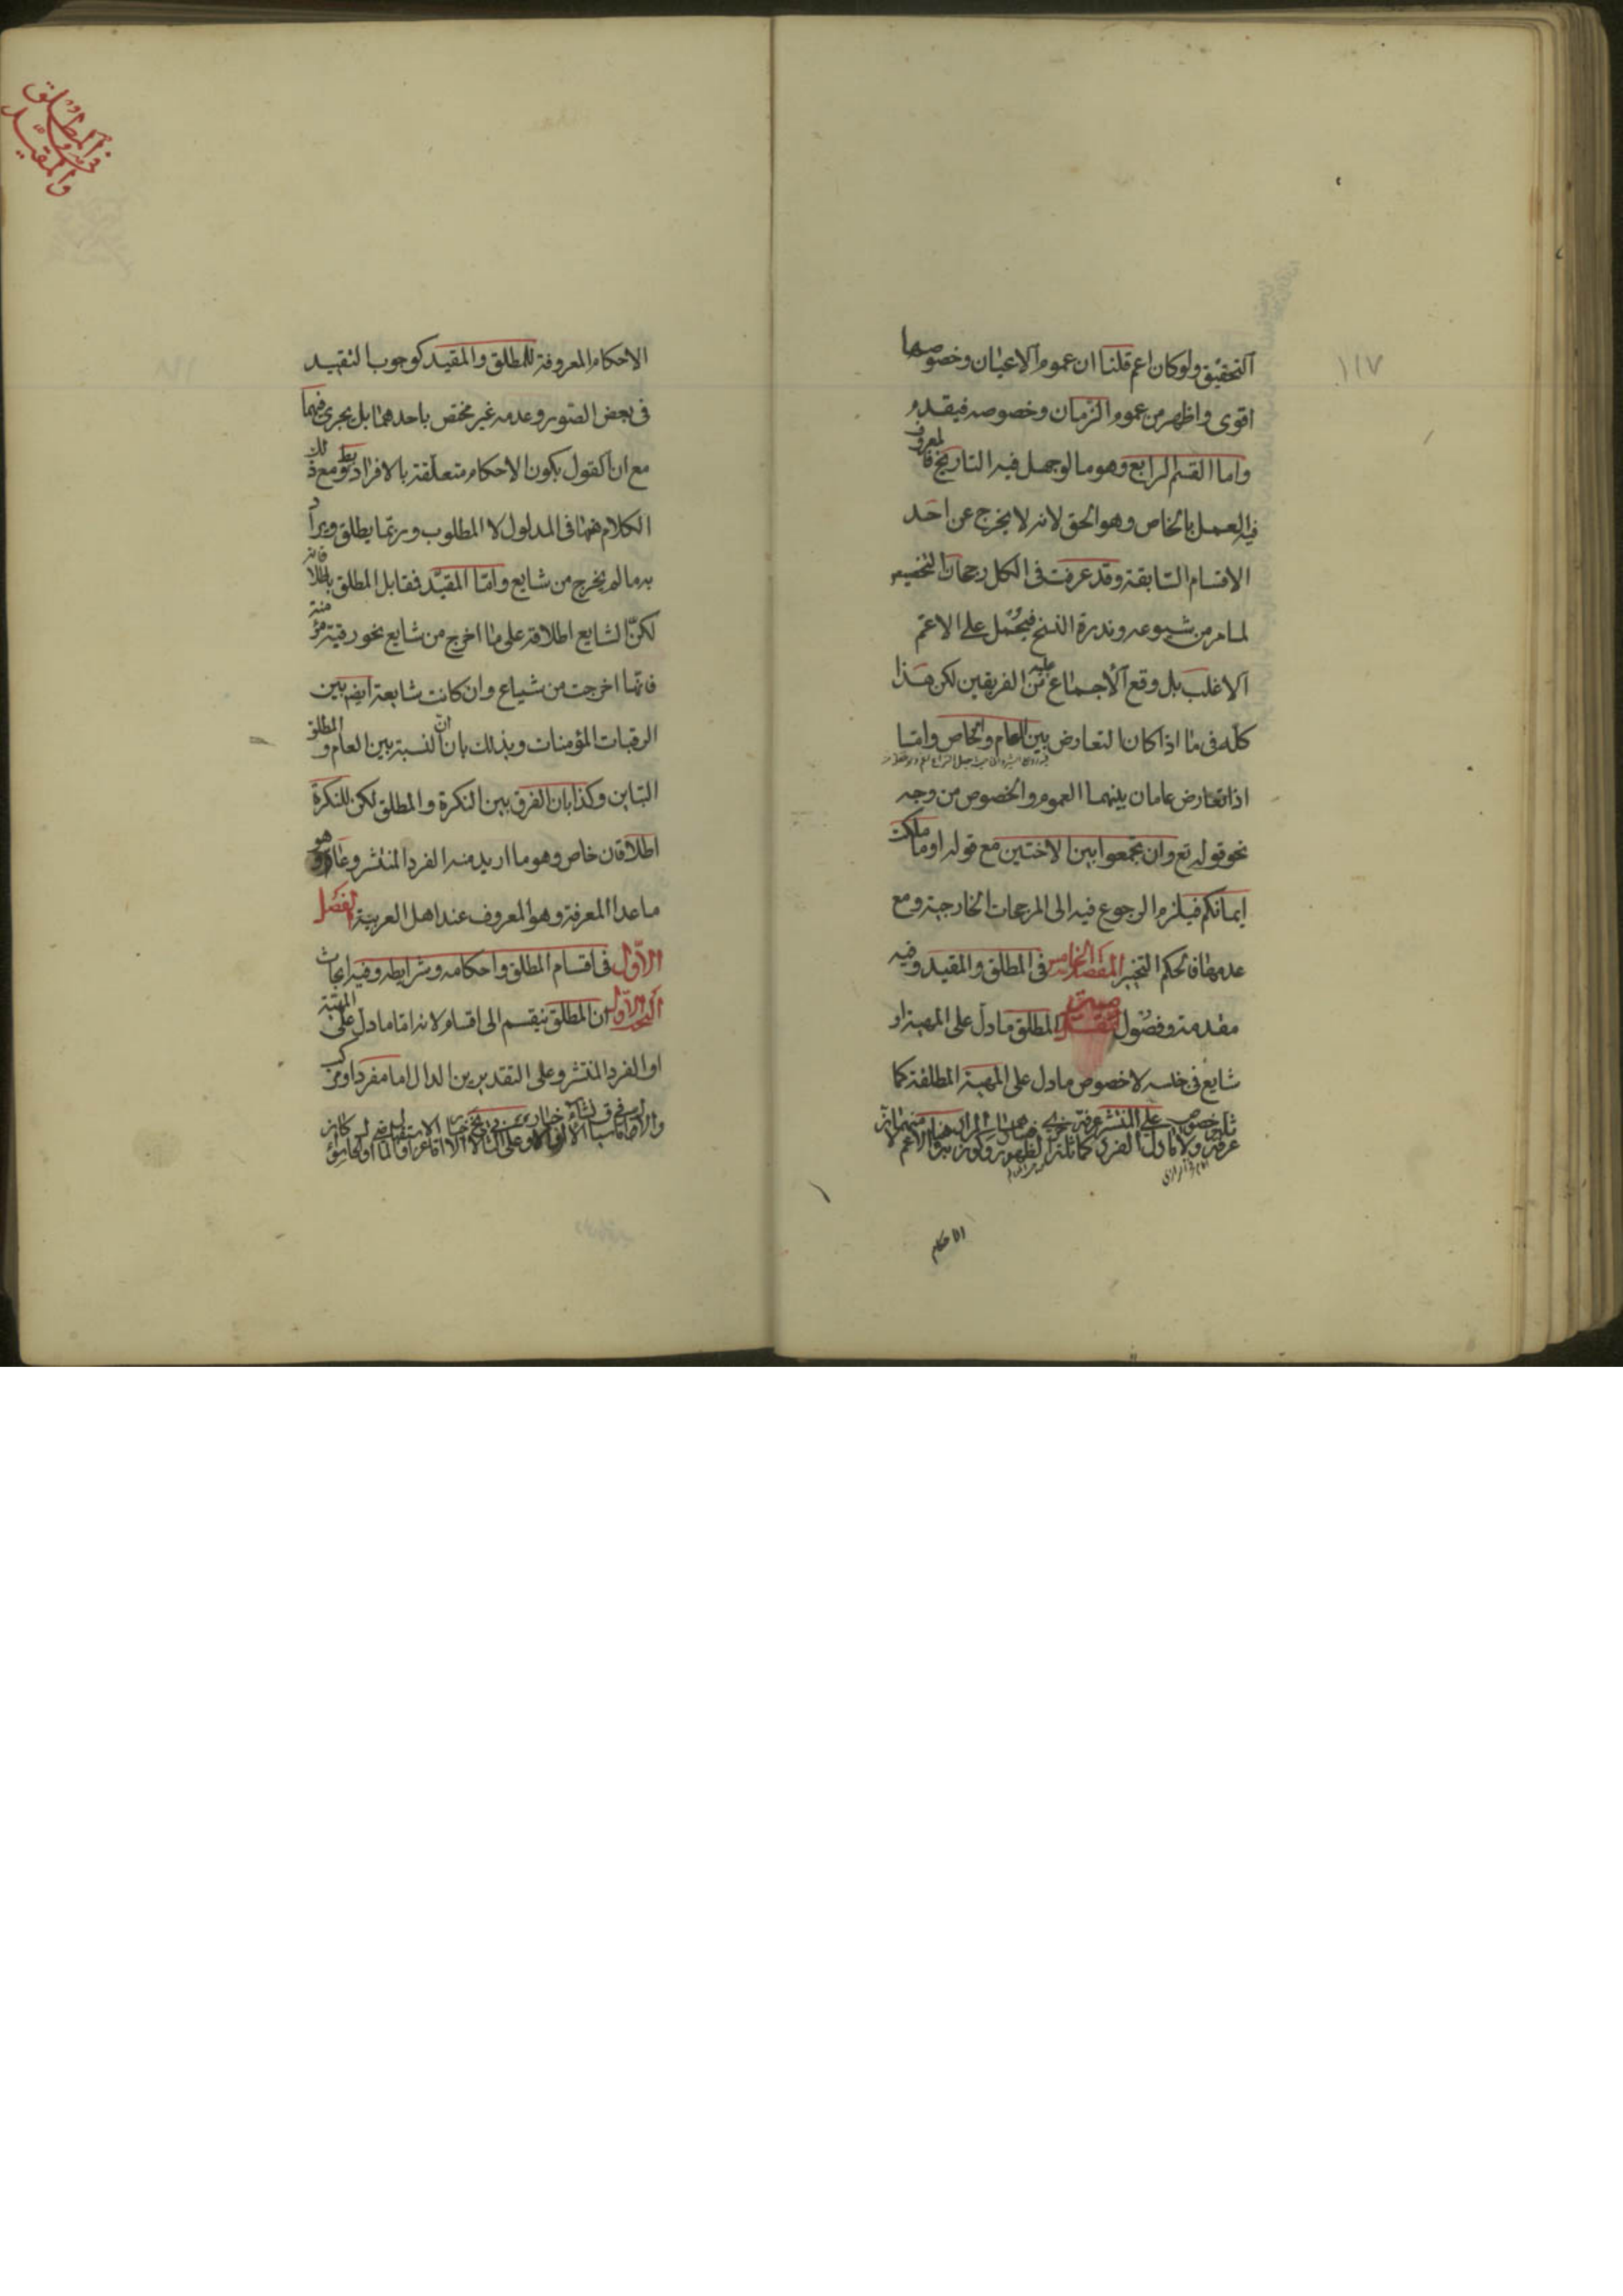 ١١٧
التحقيق ولو كان اعم قلنا ان عموم الاعيان وخصوصها
اقوى واظهر من عموم الزمان وخصوصه فيقدم
واما القسم الرابع وهو ما لو جهل فيه التاريخ فالمعروف
فيه العمل بالخاص وهو الحق لانه لا يخرج عن احد
الاقسام السابقة وقد عرفت فى الكل رجحان التخصيص
لما مر من شيوعه وندرة النسخ فيحمل على الاعم
الاغلب بل وقع الاجماع عليه من الفريقين لكن هذا
كله فى ما اذا كان التعارض بين العام والخاص واما
اذا تعارض عامان بينهما العموم والخصوص من وجه
نحو قوله تع وان تجمعوا بين الاختين مع قوله او ما ملكت
ايمانكم فيلزم الرجوع فيه الى المرجحات الخارجية ومع
عدمها فالحكم التخيير المقصد الخامس فى المطلق والمقيد وفيه
مقدمة وفصول المطلق ما دل على المهية او
شايع فى جنسه لا خصوص ما دل على المهية المطلقة كما
عن
الاحكام
فى المطلق
والمقيد
الاحكام المعروفة للمطلق والمقيد كوجوب التقييد
فى بعض الصور وعدمه غير مختص باحدهما بل يجرى فيهما
مع ان القول بكون الاحكام متعلقة بالافراد ومع ذلك
الكلام هنا فى المدلول لا المطلوب وربما يطلق ويراد
به ما لم يخرج من شايع واما المقيد فقابل المطلق باطلاقاته
لكن الشايع اطلاقه على ما اخرج من شايع نحو رقبة مؤمنة
فانها اخرجت من شياع وان كانت شايعة ايض بين
الرقبات المؤمنات وبذلك بان ان النسبة بين العام والمطلق
التباين وكذا بان الفرق بين النكرة والمطلق لكن للنكرة
اطلاقان خاص وهو ما اريد منه الفرد المنتشر وعام وهو
ما عدا المعرفة وهو المعروف عند اهل العربية الفصل
الاول فى اقسام المطلق واحكامه وشرايطه وفيه ابحاث
البحث الاول ان المطلق ينقسم الى اقسام لانه اما ما دل على المهية
او الفرد المنتشر وعلى التقديرين الدال اما مفرد او مركب